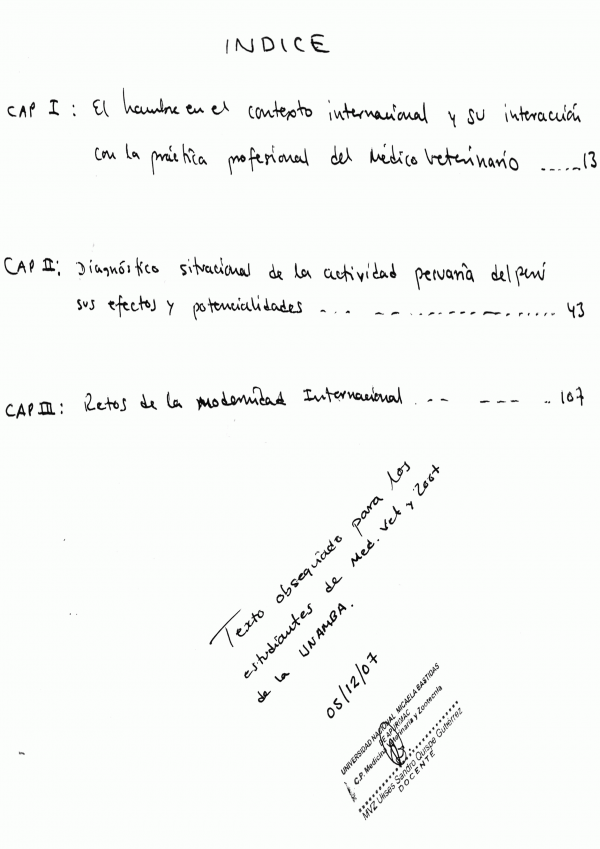 INDICE
CAP I : El hambre en el contexto internacional y su interacción
con la práctica profesional del Médico Veterinario ......13
CAP II: Diagnóstico situacional de la actividad pecuaria del perú
sus efectos y potencialidades ... ................ 43
CAP III: Retos de la modernidad Internacional ... ... .. 107
Texto obsequiado para los
estudiantes de Med. Vet y Zoot
de la UNAMBA.
05/12/07
UNIVERSIDAD NACIONAL MICAELA BASTIDAS
DE APURIMAC
C.P. Medicina Veterinaria y Zootecnia
MVZ Ulises Sandro Quispe Gutierrez
DOCENTE